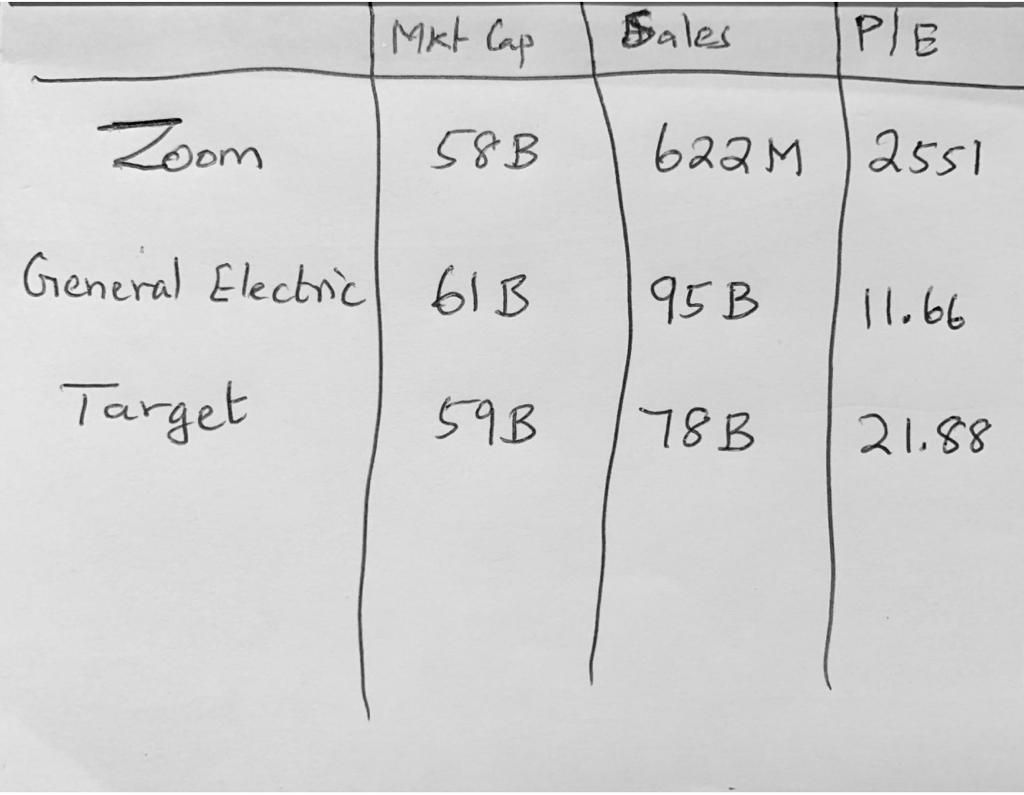 Mkt Cap Sales P/E
Zoom 58B 622M 2551
General Electric 61B 95B 11.66
Target 59B 78B 21.88